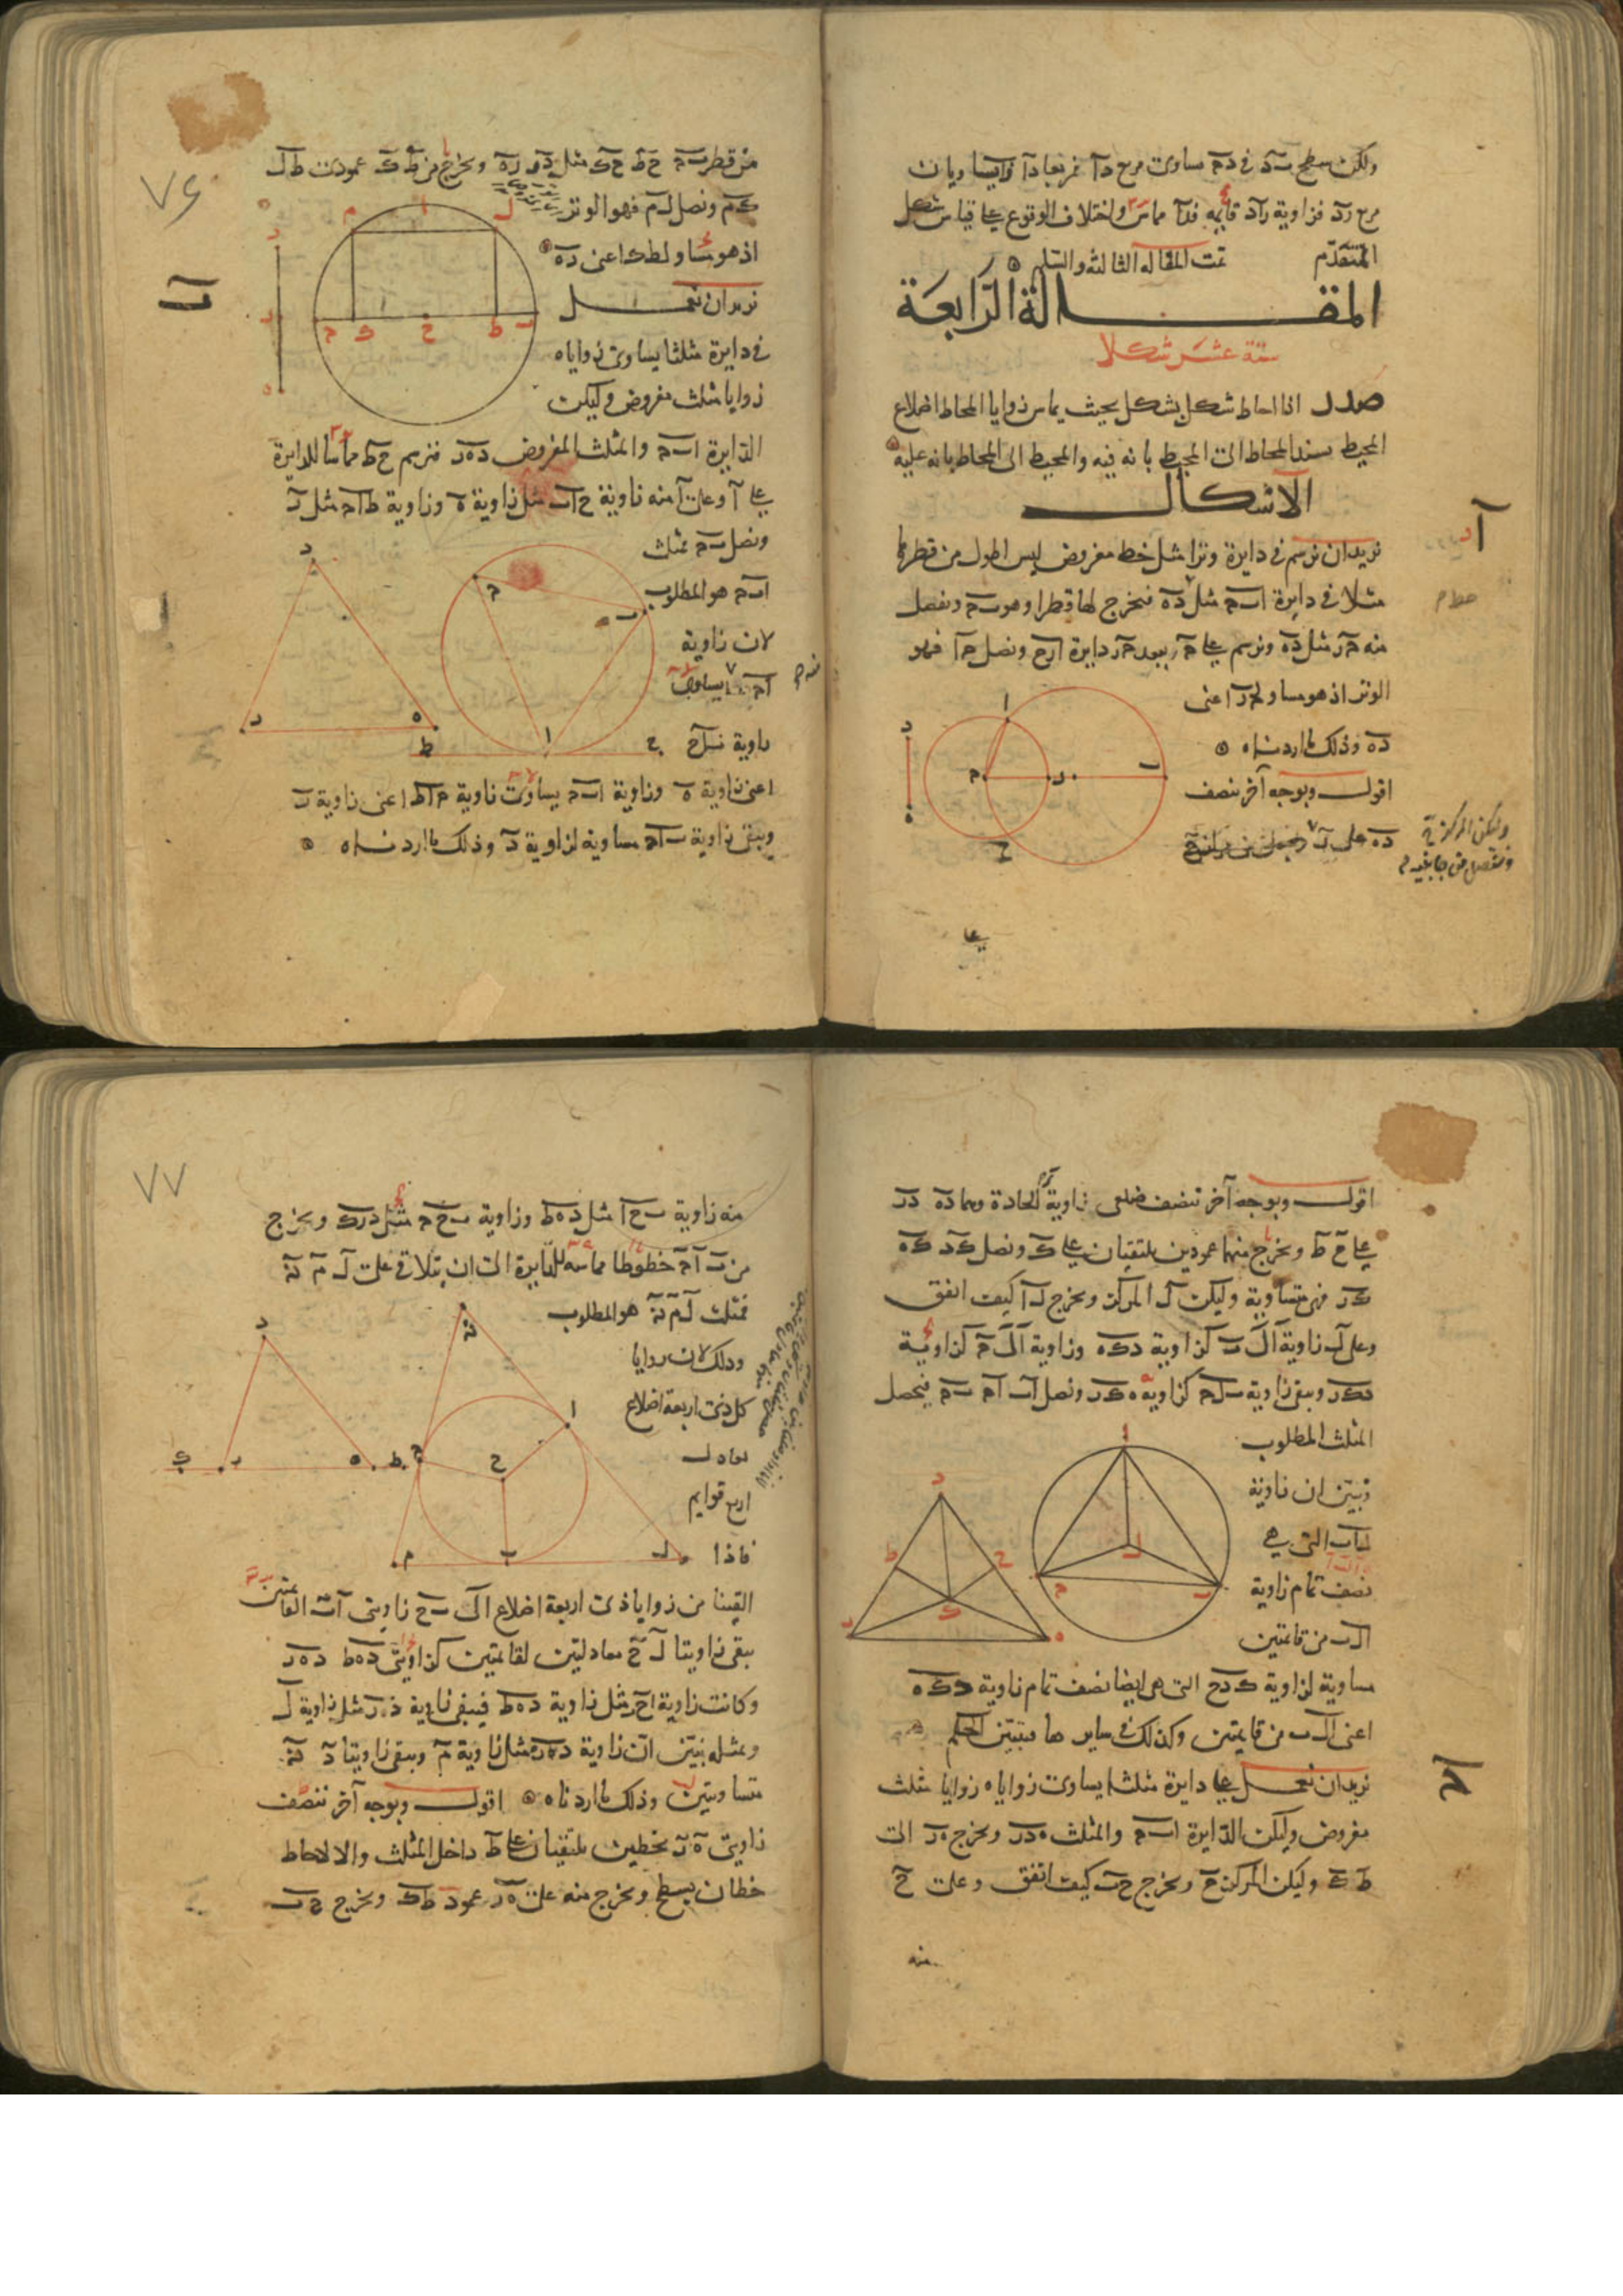 ولكن سطح ب د في د ح مساوى مربع د ا فمربعا د ا را يساويان
مربع ر د فزاوية ر ا د قايمة فدا مماس واختلاف الوقوع على قياس شكل
المتقدم تمت المقالة الثالثة والتسلم
المقالة الرابعة
ستة عشر شكلا
صدر اذا احاط شكل بشكل بحيث يماس زوايا المحاط اضلاع
المحيط يسند المحاط الى المحيط بانه فيه والمحيط الى المحاط بانه عليه
الاشكال
ا
نريد ان نرسم في دايرة وترا مثل خط مفروض ليس اطول من قطرها
مثلا في دايرة ا ب ح مثل د ه فنخرج لها قطرا وهو ب ح ونفصل
منه ح ر مثل د ه ونرسم على ح ببعد ح ر دايرة ا ر ح ونصل ح ا فهو
الوتر اذ هو مساو لح ر اعنى
د ه وذلك ما اردناه
اقول وبوجه آخر ننصف
د ه على ر
وليكن المركز ح
ونفصل من جانبيه
على
٧٦
من قطر ب ح ح ط ح ك مثل د ر ر ه ونخرج من ط ك عمودى ط ل
ك م ونصل ل م فهو الوتر
اذ هو مساو لط ك اعنى د ه
ب
نريد ان نعمل
في دايرة مثلثا يساوى زواياه
زوايا مثلث مفروض وليكن
الدايرة ا ب ح والمثلث المفروض د ه ر فنرسم ح ط مماسا للدايرة
على ا وعلى ا منه زاوية ح ا ب مثل زاوية ه وزاوية ط ا ح مثل ر
ونصل ب ح مثلث
ا ب ح هو المطلوب
لان زاوية
ا ح ب يساوى
زاوية ب ا ح
اعنى زاوية ه وزاوية ا ب ح يساوى زاوية ح ا ط اعنى زاوية ر
ويبقى زاوية ب ا ح مساوية لزاوية د وذلك ما اردناه
اقول وبوجه آخر ننصف ضلعى زاوية الحادة وهما د ه د ر
على ح ط ونخرج منهما عمودين يلتقيان على ك ونصل ك د ك ه
ك ر فهى متساوية وليكن ل المركز ونخرج ل ا كيف اتفق
وعلى ل زاوية ا ل ب كزاوية د ك ه وزاوية ا ل ح كزاوية
د ك ر ويبقى زاوية ب ل ح كزاوية ه ك ر ونصل ا ب ا ح ب ح فيحصل
المثلث المطلوب
فبيّن ان زاوية
ل ا ب التى هى
نصف تمام زاوية
ا ل ب من قايمتين
مساوية لزاوية ك د ح التى هى ايضا نصف تمام زاوية د ك ه
اعنى ا ل ب من قايمتين وكذلك في سايرها فتبيّن الحكم
ح
نريد ان نعمل على دايرة مثلثا يساوى زواياه زوايا مثلث
مفروض وليكن الدايرة ا ب ح والمثلث ه د ر ونخرج ه ر الى
ط ك وليكن المركز ح ونخرج ح ب كيف اتفق وعلى ح
منه
٧٧
منه زاوية ب ح ا مثل د ه ط وزاوية ب ح ح مثل د ر ك ونخرج
من ب ا ح خطوطا مماسة للدايرة الى ان يتلاقى على ل م ن
فمثلث ل م ن هو المطلوب
وذلك لان زوايا
كل ذى اربعة اضلاع
تعادل
اربع قوايم
فاذا
القينا من زوايا ذى اربعة اضلاع ا ل ب ح زاويتى ا ب القايمتين
يبقى زاويتا ل ح معادلتين لقايمتين كزاويتى د ه ط د ه ر
وكانت زاوية ا ح ب مثل زاوية د ه ط فيبقى زاوية د ه ر مثل زاوية ل
وبمثله نبيّن ان زاوية د ر ه مثل زاوية م ويبقى زاويتا د ن
متساويتين وذلك ما اردناه اقول وبوجه آخر ننصف
زاويتى ه ر بخطين يلتقيان على ط داخل المثلث والا لاحاط
خطان بسطح ونخرج منه على ه ر عمود ط ك ونخرج ح ب